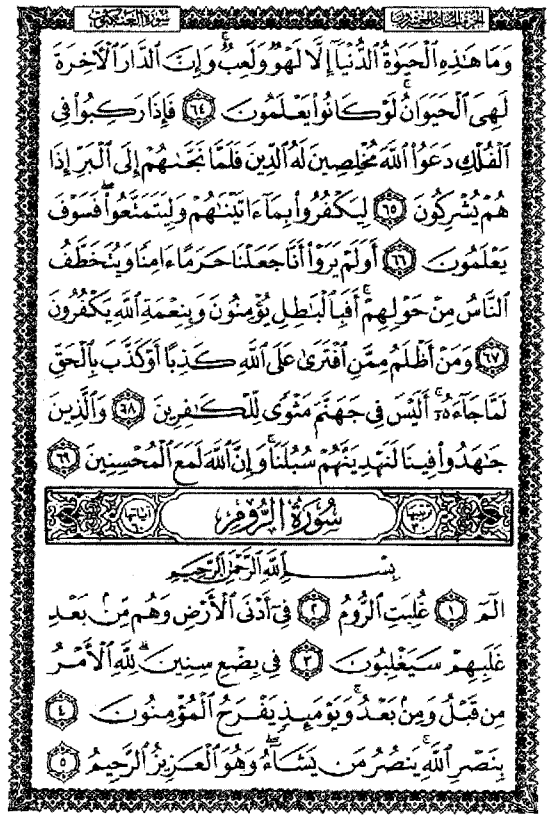 سُورَةُ العَنكَبُوتِ
الجُزْءُ الحَادِي وَالعِشْرُونَ
وَمَا هَٰذِهِ ٱلْحَيَوٰةُ ٱلدُّنْيَآ إِلَّا لَهْوٌ وَلَعِبٌ ۚ وَإِنَّ ٱلدَّارَ ٱلْأَخِرَةَ
لَهِىَ ٱلْحَيَوَانُ ۚ لَوْ كَانُوا۟ يَعْلَمُونَ ٦٤ فَإِذَا رَكِبُوا۟ فِى
ٱلْفُلْكِ دَعَوُا۟ ٱللَّهَ مُخْلِصِينَ لَهُ ٱلدِّينَ فَلَمَّا نَجَّىٰهُمْ إِلَى ٱلْبَرِّ إِذَا
هُمْ يُشْرِكُونَ ٦٥ لِيَكْفُرُوا۟ بِمَآ ءَاتَيْنَٰهُمْ وَلِيَتَمَتَّعُوا۟ ۖ فَسَوْفَ
يَعْلَمُونَ ٦٦ أَوَلَمْ يَرَوْا۟ أَنَّا جَعَلْنَا حَرَمًا ءَامِنًا وَيُتَخَطَّفُ
ٱلنَّاسُ مِنْ حَوْلِهِمْ ۚ أَفَبِٱلْبَٰطِلِ يُؤْمِنُونَ وَبِنِعْمَةِ ٱللَّهِ يَكْفُرُونَ
٦٧ وَمَنْ أَظْلَمُ مِمَّنِ ٱفْتَرَىٰ عَلَى ٱللَّهِ كَذِبًا أَوْ كَذَّبَ بِٱلْحَقِّ
لَمَّا جَآءَهُۥٓ ۚ أَلَيْسَ فِى جَهَنَّمَ مَثْوًى لِّلْكَٰفِرِينَ ٦٨ وَٱلَّذِينَ
جَٰهَدُوا۟ فِينَا لَنَهْدِيَنَّهُمْ سُبُلَنَا ۚ وَإِنَّ ٱللَّهَ لَمَعَ ٱلْمُحْسِنِينَ ٦٩
ترتيبها ٣٠ سُورَةُ الرُّومِ آياتها
بِسْمِ ٱللَّهِ ٱلرَّحْمَٰنِ ٱلرَّحِيمِ
الٓمٓ ١ غُلِبَتِ ٱلرُّومُ ٢ فِىٓ أَدْنَى ٱلْأَرْضِ وَهُم مِّنۢ بَعْدِ
غَلَبِهِمْ سَيَغْلِبُونَ ٣ فِى بِضْعِ سِنِينَ ۗ لِلَّهِ ٱلْأَمْرُ
مِن قَبْلُ وَمِنۢ بَعْدُ ۚ وَيَوْمَئِذٍ يَفْرَحُ ٱلْمُؤْمِنُونَ ٤
بِنَصْرِ ٱللَّهِ ۚ يَنصُرُ مَن يَشَآءُ ۖ وَهُوَ ٱلْعَزِيزُ ٱلرَّحِيمُ ٥